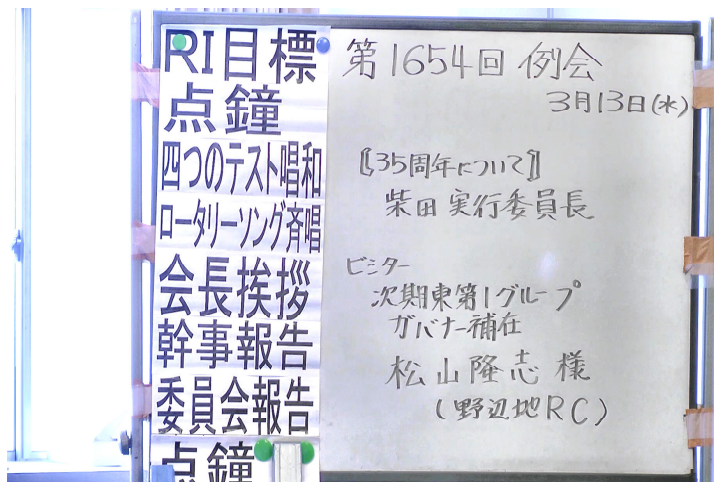 RI目標
点鐘
四つのテスト唱和
ロータリーソング斉唱
会長挨拶
幹事報告
委員会報告
点鐘
第1654回 例会
3月13日(水)
〖35周年について〗
柴田 実行委員長
ビジター
次期東第1グループ
ガバナー補在
松山隆志 様
(野辺地RC)